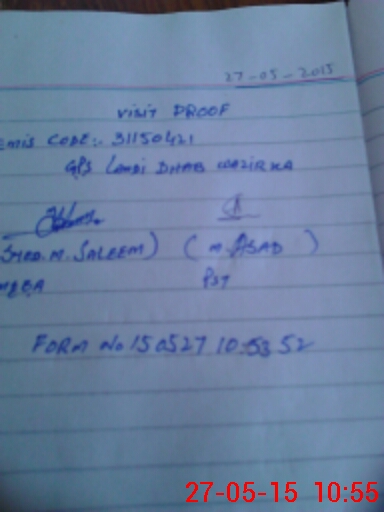 27-05-2015
VISIT PROOF
EMIS CODE:. 31150421
GPS Landi DHAB WAZIRKA
SYED. M. SALEEM) ( M. ASAD )
PST
FORM No 150527 10:53 52
27-05-15 10:55